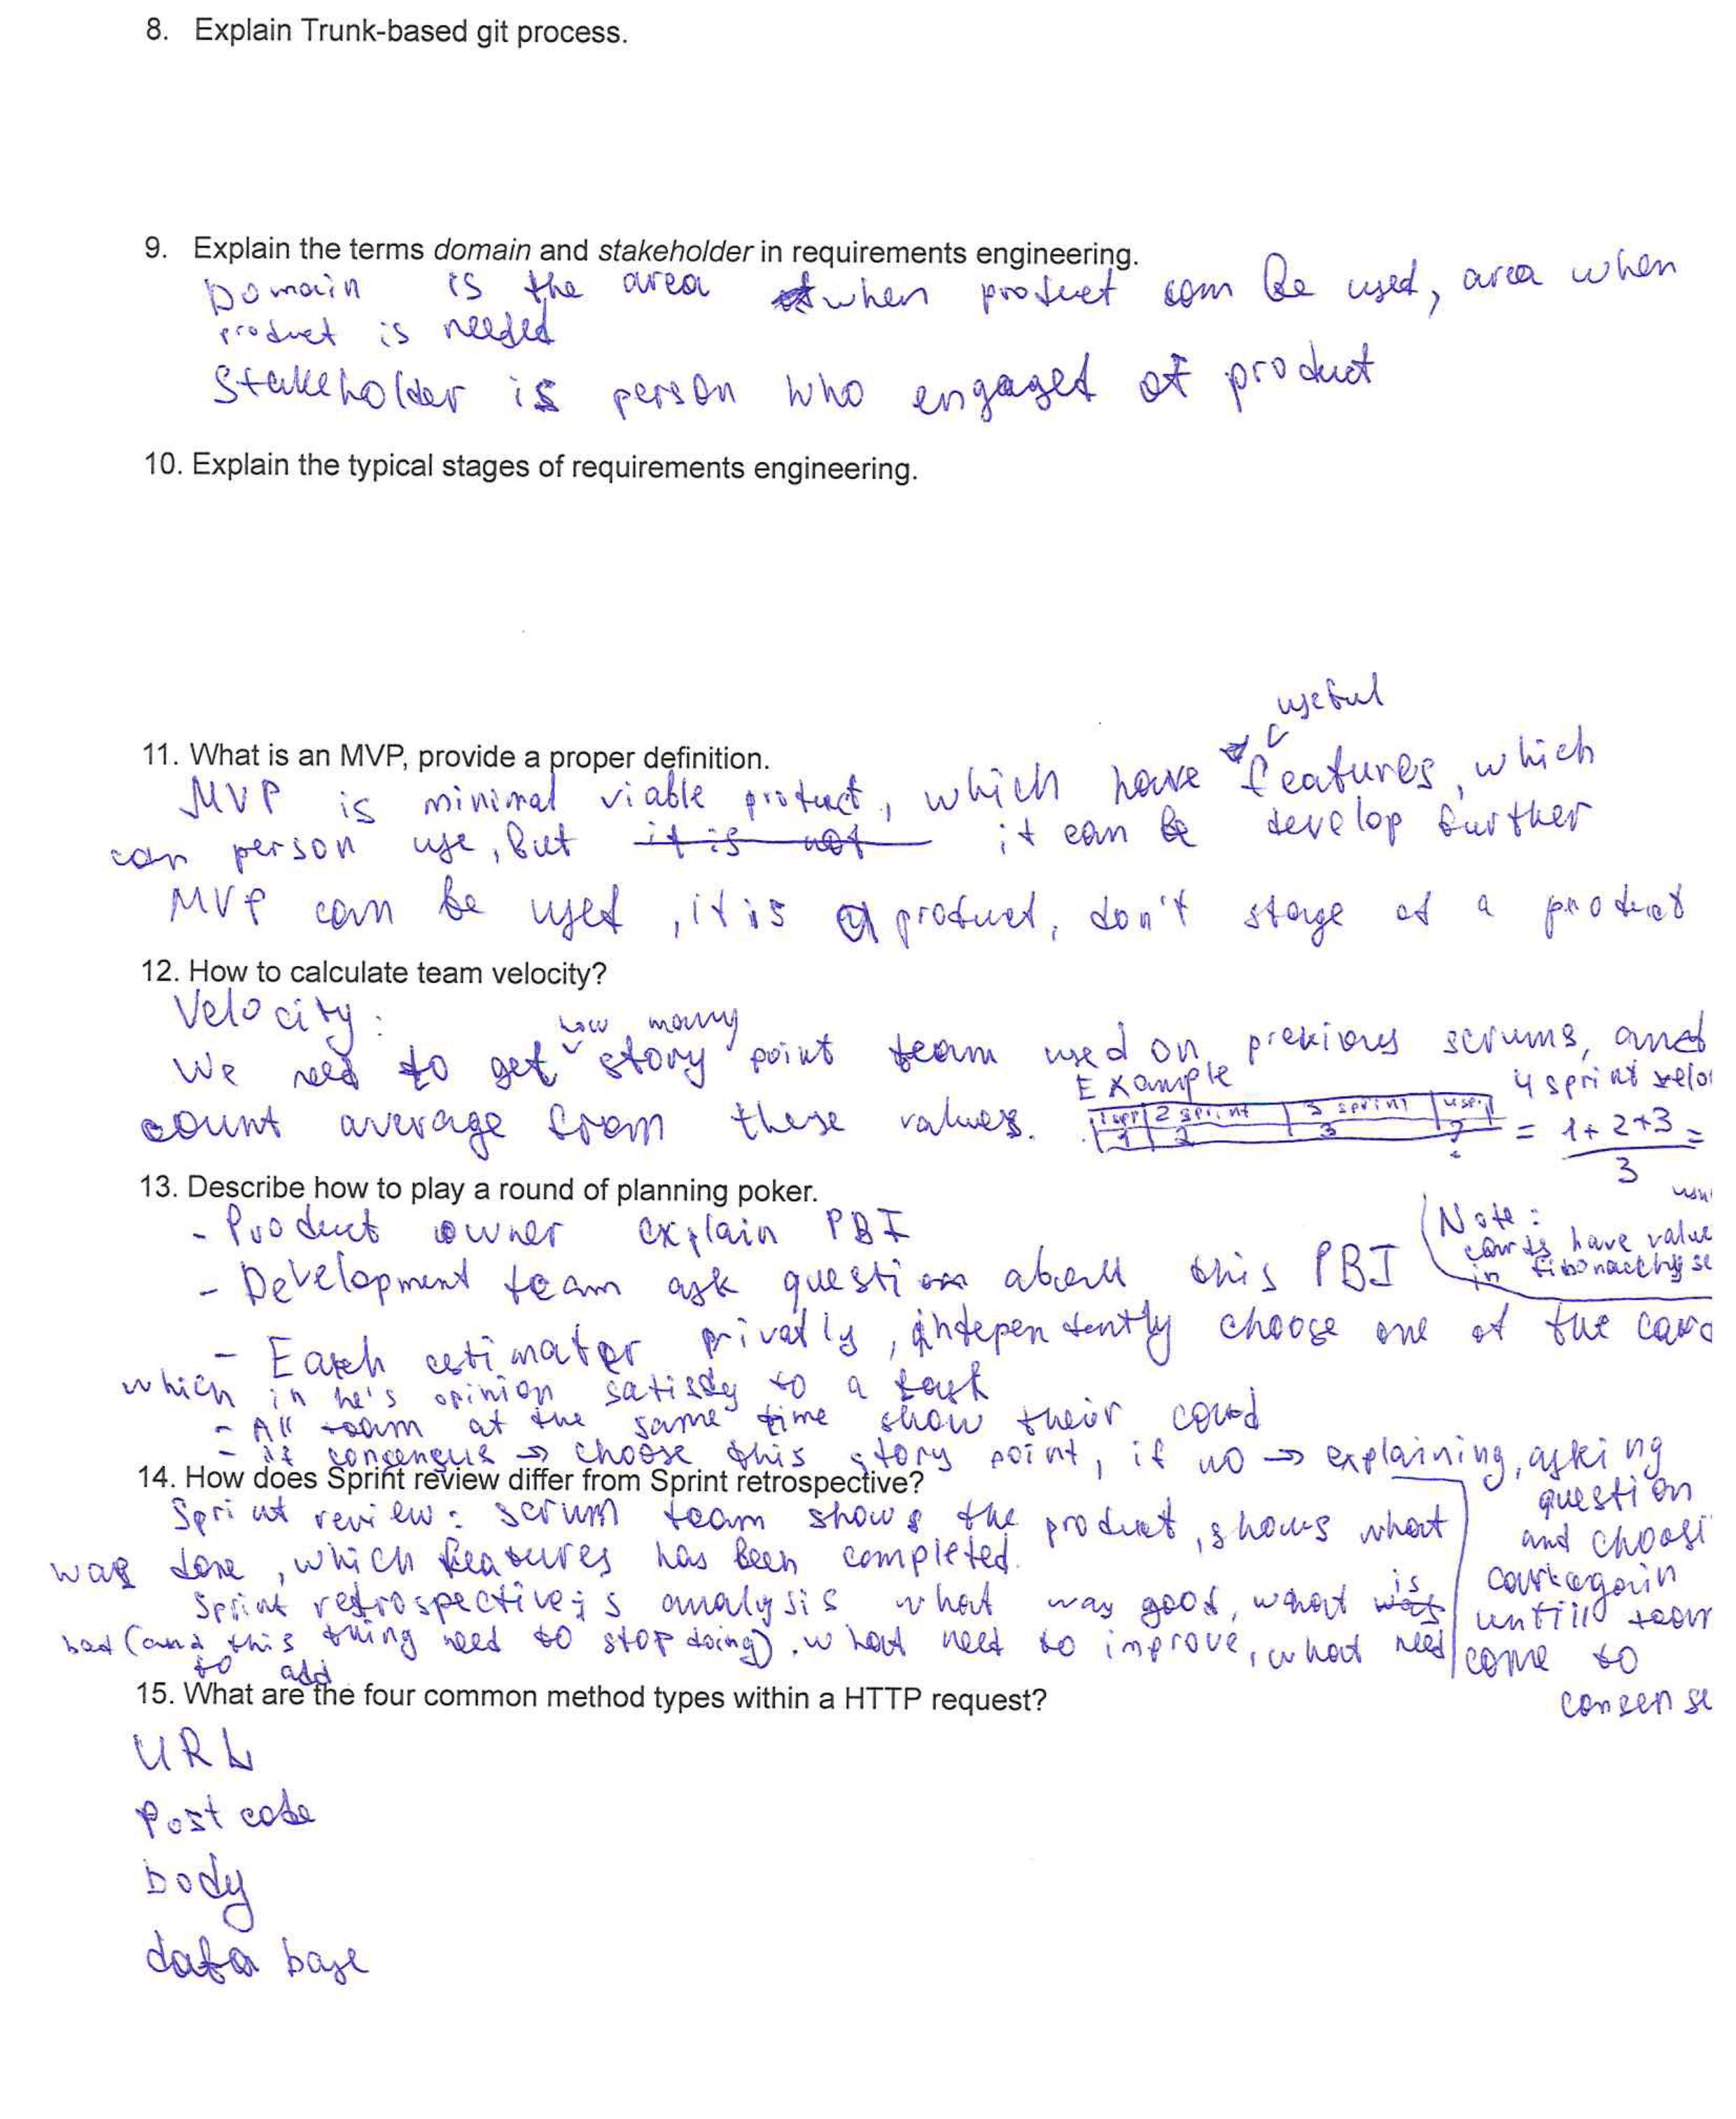 8. Explain Trunk-based git process.
9. Explain the terms domain and stakeholder in requirements engineering.
Domain is the area when product can be used, area when
product is needed
Stakeholder is person who engaged at product
10. Explain the typical stages of requirements engineering.
useful
11. What is an MVP, provide a proper definition.
MVP is minimal viable product, which have features, which
can person use, but it is not it can be develop further
MVP can be used, it is a product, don't stage of a product
12. How to calculate team velocity?
Velocity:
how many
We need to get story point team used on previous scrums, and
count average from these values.
Example
1 spr 2 sprint 3 sprint 4 spr
1 2 3 ?
4 sprint velo
= 1+2+3 =
3
13. Describe how to play a round of planning poker.
- Product owner explain PBI
- Development team ask question about this PBI
Note:
cards have value
in fibonacchy se
- Each estimator privatly, independently choose one of the card
which in he's opinion satisfy to a task
- All team at the same time show their card
- if consensus → choose this story point, if no → explaining, asking
question
and choosi
card again
untill team
come to
consense
14. How does Sprint review differ from Sprint retrospective?
Sprint review: scrum team shows the product, shows what
was done, which features has been completed.
Sprint retrospective: is analysis what was good, what was is
bad (and this thing need to stop doing). what need to improve, what need
to add
15. What are the four common method types within a HTTP request?
URL
Post code
body
data base